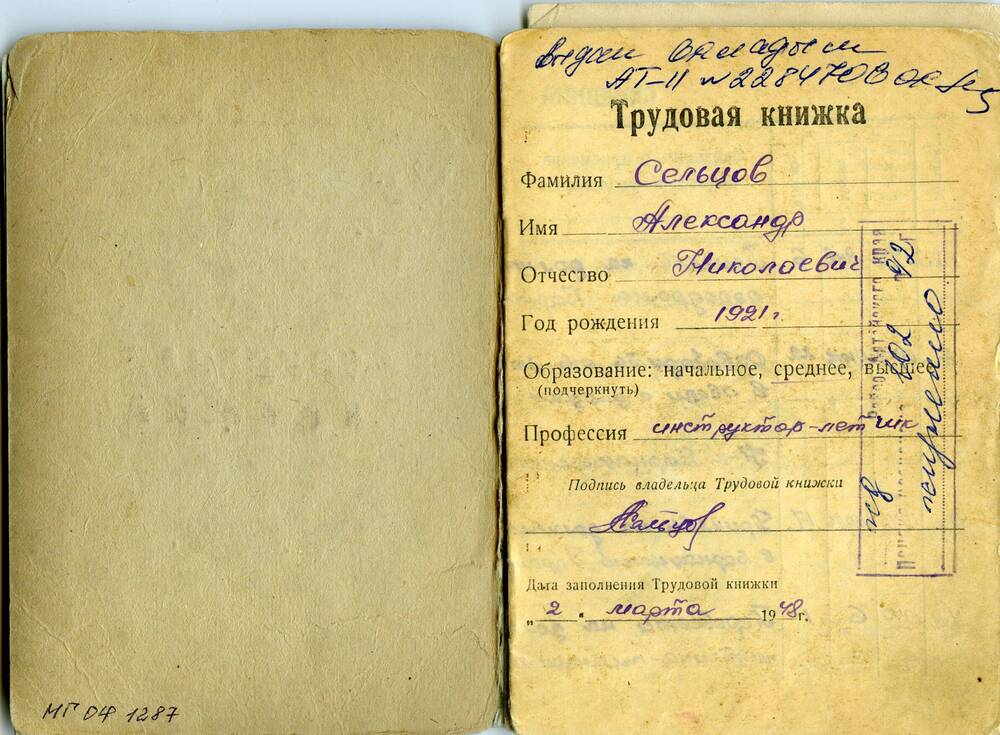 МГ ОФ 1287
Выдан вкладыш
АТ-II № 2284708
Трудовая книжка
Фамилия Сельцов
Имя Александр
Отчество Николаевич
Год рождения 1921 г.
Образование: начальное, среднее, высшее
(подчеркнуть)
Профессия инструктор-летчик
Подпись владельца Трудовой книжки
Дата заполнения Трудовой книжки
„ 2 “ марта 1948 г.
Алтайского края